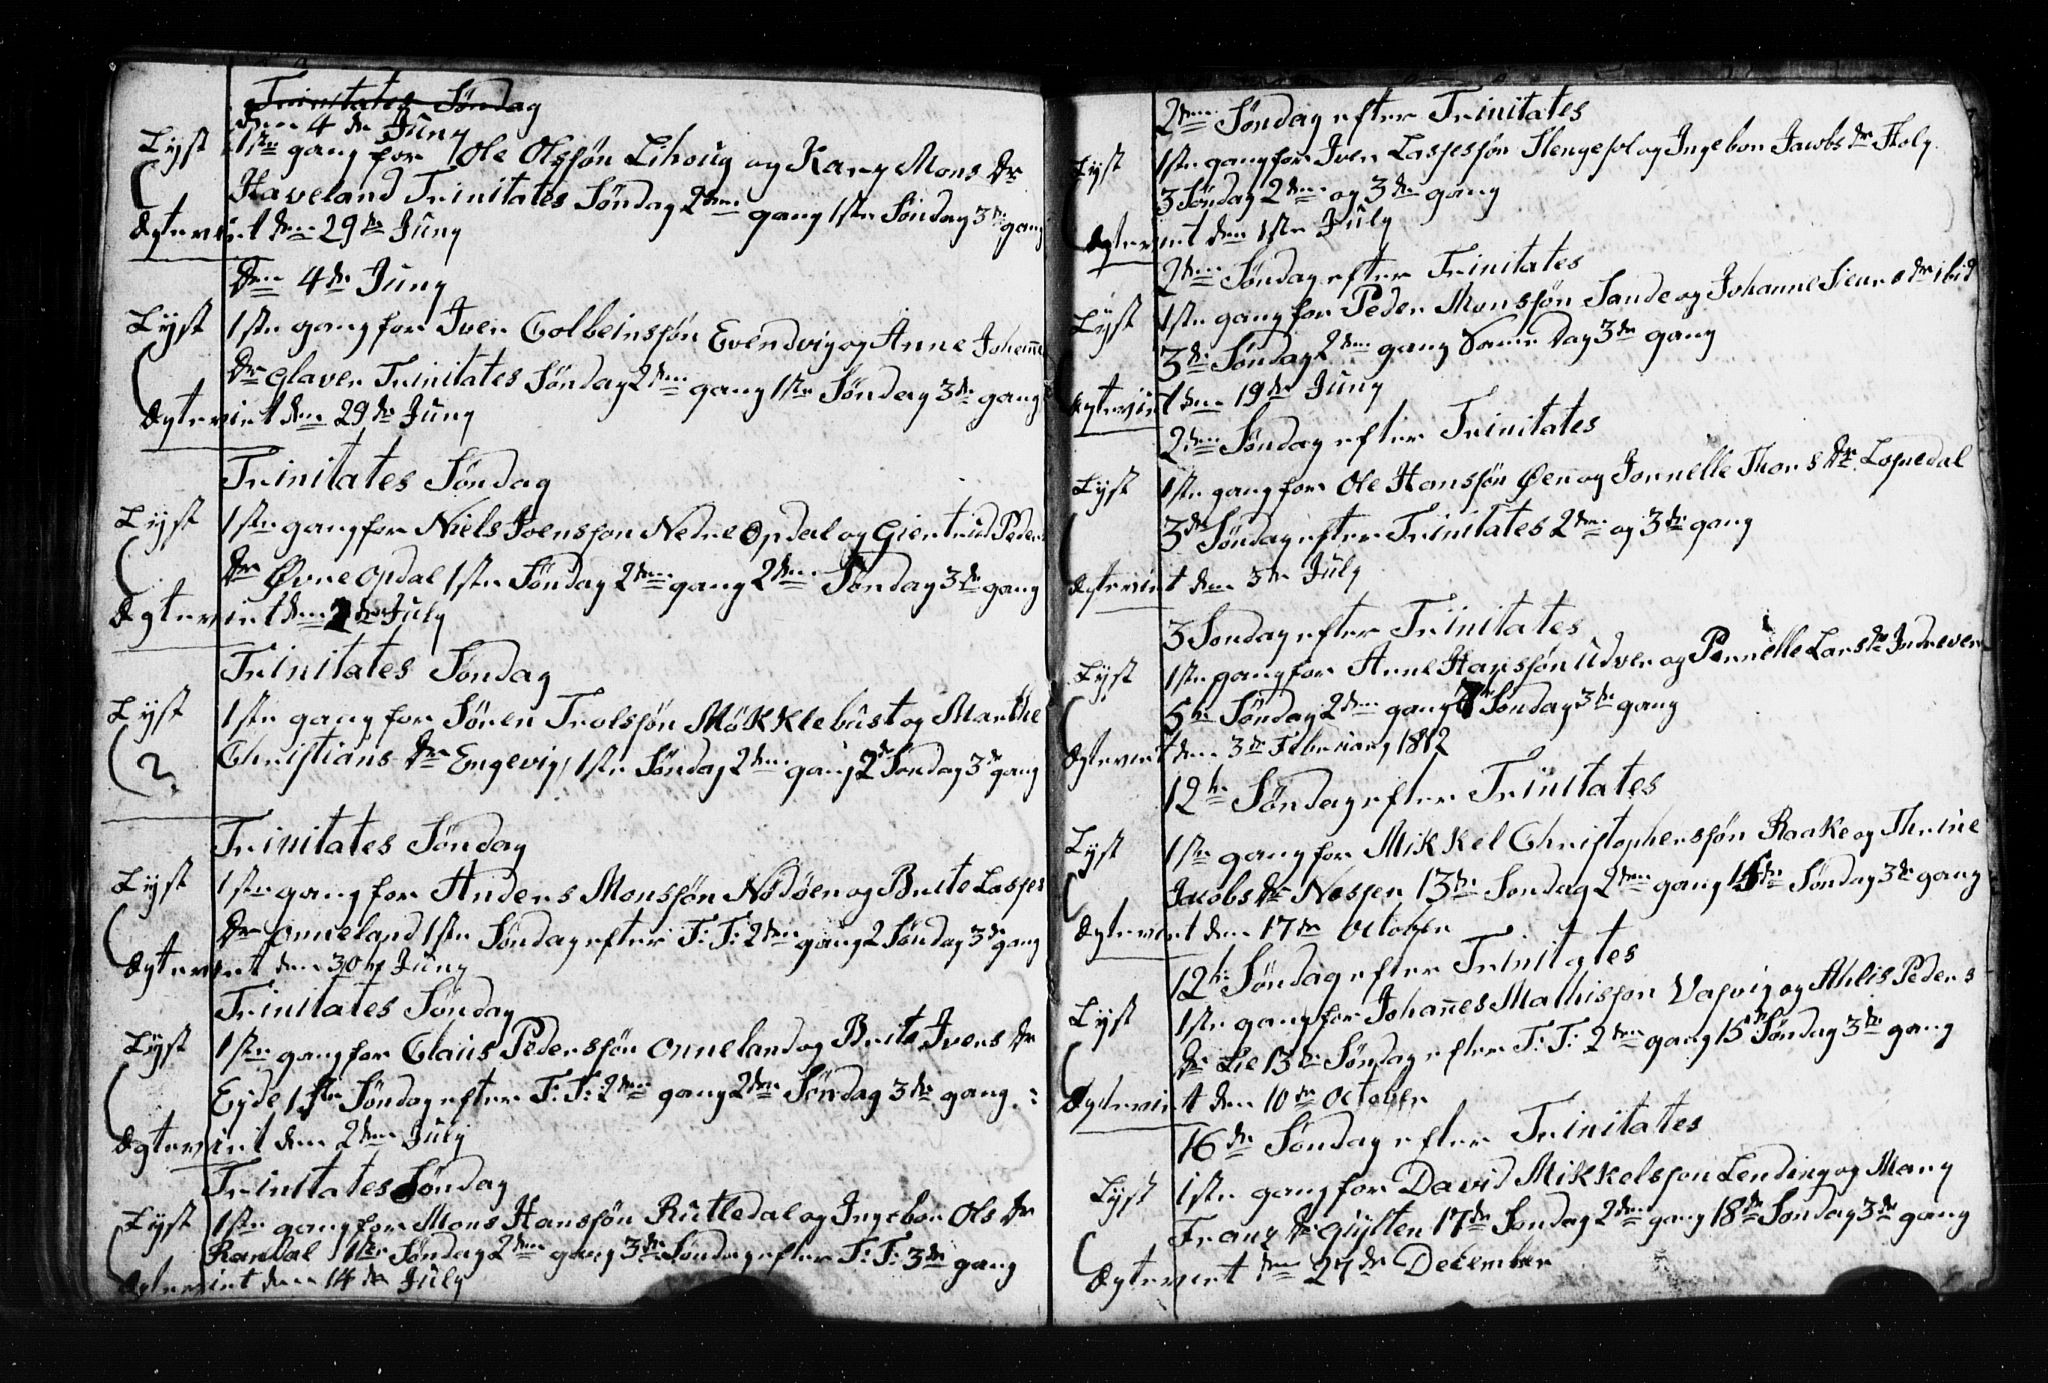 Trinitates Søndag
den 4de Juny
Lyst 1ste gang for Ole Olssøn Lihoug og Kary Mons Dr
Haveland Trinitates Søndag 2den gang 1ste Søndag 3de gang
Ægteviet den 29de Juny
Den 4de Juny
Lyst 1ste gang for Iver Colbeinssøn Evendvig og Anne Johannes
Dr Glaver Trinitates Søndag 2den gang 1ste Søndag 3de gang
Ægteviet den 29de Juny
Trinitates Søndag
Lyst 1ste gang for Niels Ivenssøn Nedre Opdal og Giertrud Peders
Dr Øvre Opdal 1ste Søndag 2den gang 2den Søndag 3de gang
Ægteviet den 2de July
Trinitates Søndag
Lyst 1ste gang for Søren Trolssøn Møkklebust og Marthe
Christians Dr Engevig 1ste Søndag 2den gang 2d Søndag 3de gang
?
Trinitates Søndag
Lyst 1ste gang for Anders Monssøn Nødøen og Brite Lasses
Dr Onneland 1ste Søndag efter F: T: 2den gang 2 Søndag 3de gang
Ægteviet den 30te Juny
Trinitates Søndag
Lyst 1ste gang for Claus Pederssøn Onneland og Brite Ivers Dr
Eyde 1ste Søndag efter F: T: 2den gang 2den Søndag 3de gang
Ægteviet den 2den July
Trinitates Søndag
Lyst 1ste gang for Mons Hanssøn Rutledal og Ingebor Ols Dr
Randal 1ste Søndag 2den gang 3de Søndag efter F: T: 3de gang
Ægteviet den 14de July
2den Søndag efter Trinitates
Lyst 1ste gang for Iver Lassessøn Slengesol og Ingebor Jacobs Dr Holy
3 Søndag 2den og 3de gang
Ægteviet den 1ste July
2den Søndag efter Trinitates
Lyst 1ste gang for Peder Monssøn Sande og Johanne Siurs Dr ibid
3de Søndag 2den gang Same Dag 3de gang
Ægteviet den 19de Juny
2den Søndag efter Trinitates
Lyst 1ste gang for Ole Hanssøn Øen og Jonnelle Thors Dr Losnedal
3de Søndag efter Trinitates 2den og 3de gang
Ægteviet den 3de July
3 Søndag efter Trinitates
Lyst 1ste gang for Arne Hanssøn Udver og Pernelle Lars Dr Indrever
5te Søndag 2den gang Søndag 3de gang
Ægteviet den 3de Februarj 1812
12te Søndag efter Trinitates
Lyst 1ste gang for Mikkel Christopherssøn Raake og Thrine
Jacobs Dr Nessen 13de Søndag 2den gang 15de Søndag 3de gang
Ægteviet den 17de October
12te Søndag efter Trinitates
Lyst 1ste gang for Johannes Mathissøn Vasvig og Ahlis Peders
Dr Lie 13de Søndag efter F: T: 2den gang 15de Søndag 3de gang
Ægteviet den 10de October
16de Søndag efter Trinitates
Lyst 1ste gang for David Mikkelssøn Lending og Mary
Franz Dr Gylten 17de Søndag 2den gang 18de Søndag 3de gang
Ægteviet den 27de December